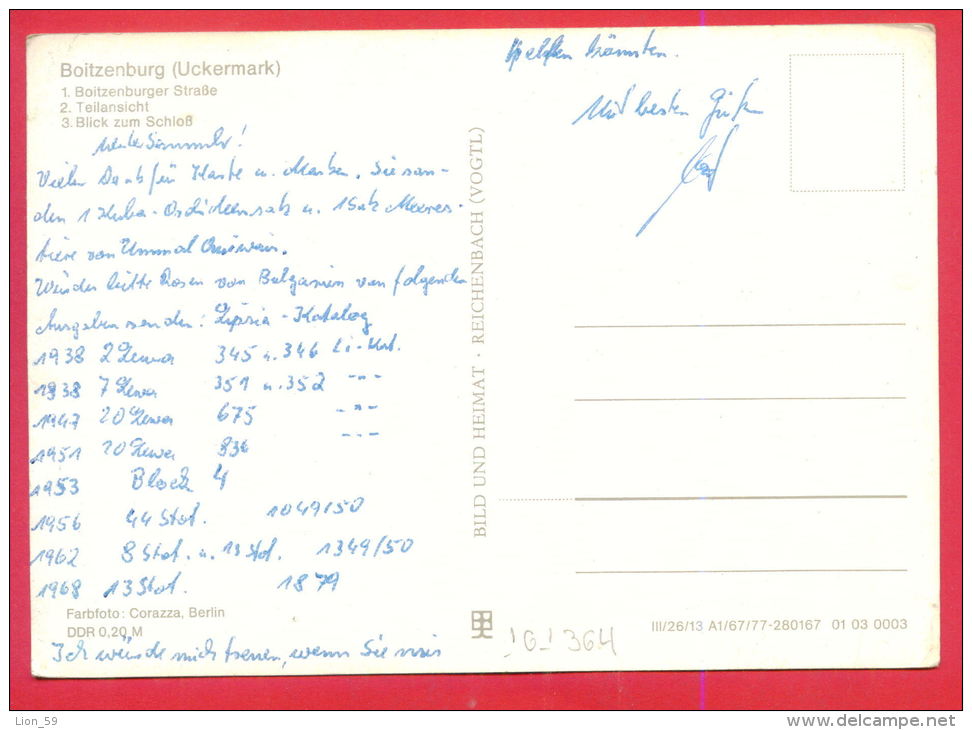 Boitzenburg (Uckermark)
1. Boitzenburger Straße
2. Teilansicht
3. Blick zum Schloß
Vielen Dank für Karte u. Marken. Sie san-
den 1 Kuba-Orchideensatz u. 1 Satz Meeres-
tiere von Umm al
Würden bitte Rosen von Bulgarien von folgenden
Ausgaben senden: Lipsia-Katalog
1938 2 Lewa 345 u. 346 Li-Kat.
1938 7 Lewa 351 u. 352 -"-
1947 20 Lewa 675 -"-
1951 20 Lewa -"-
1953 Block 4
1956 44 Stot. 1049/50
1962 8 Stot. u. 13 Stot. 1349/50
1968 13 Stot. 1879
Farbfoto: Corazza, Berlin
DDR 0,20 M
Ich würde mich freuen, wenn Sie mir
helfen könnten.
Mit besten
BILD UND HEIMAT · REICHENBACH (VOGTL)
III/26/13 A1/67/77-280167 01 03 0003
364
Lion_59
delcampe.net